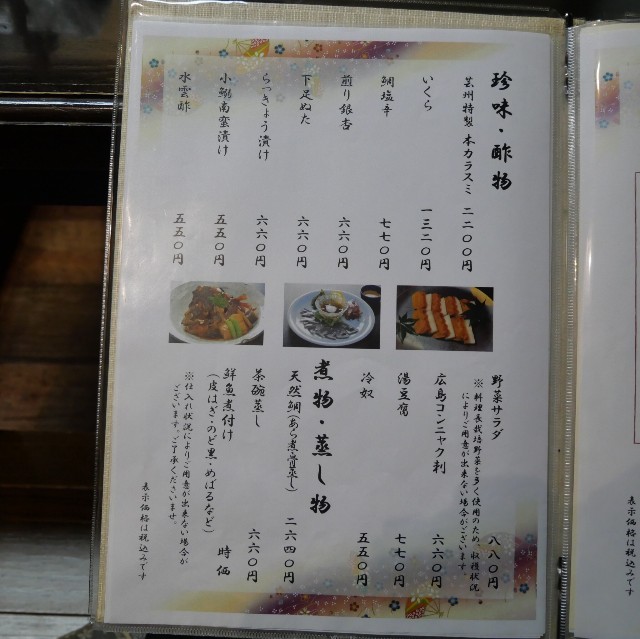 珍味・酢物
芸州特製 本カラスミ 二二〇〇円
いくら 一三二〇円
鯛塩辛 七七〇円
煎り銀杏 六六〇円
下足ぬた 六六〇円
らっきょう漬け 六六〇円
小鰯南蛮漬け 五五〇円
水雲酢 五五〇円
野菜サラダ 八八〇円
※料理長栽培野菜を多く使用のため、収穫状況
によりご用意が出来ない場合がございます。
広島コンニャク刺 六六〇円
湯豆腐 七七〇円
冷奴 五五〇円
煮物・蒸し物
天然鯛(あら煮・骨蒸し) 二六四〇円
茶碗蒸し 六六〇円
鮮魚煮付け 時価
(皮はぎ・のど黒・めばるなど)
※仕入れ状況によりご用意が出来ない場合が
ございます。ご了承くださいませ。
表示価格は税込みです
表示価格は税込みです